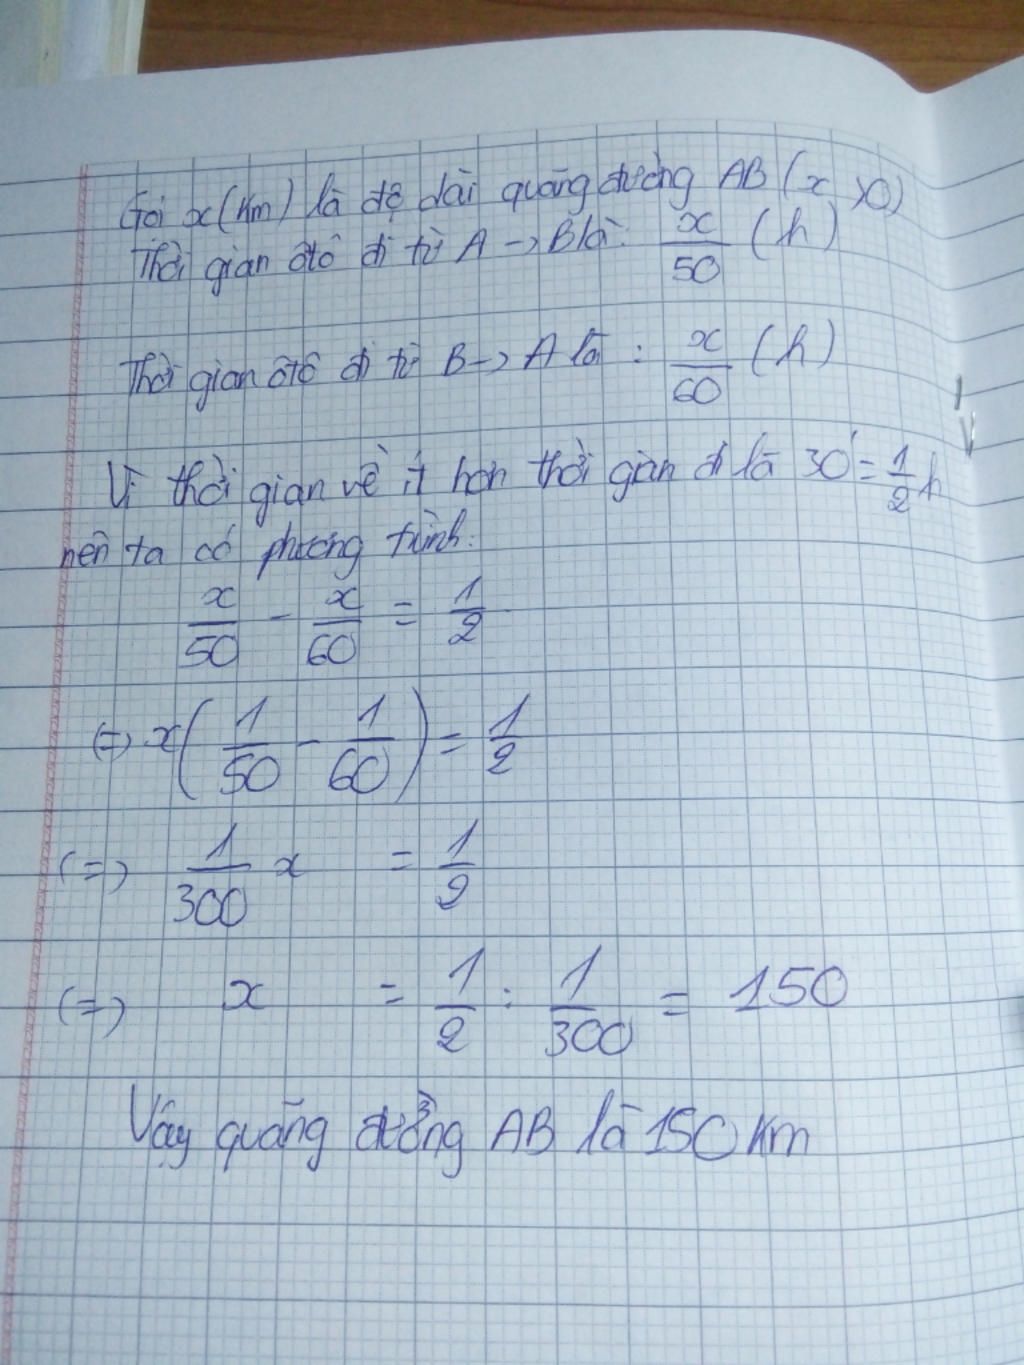 Gọi x (km) là độ dài quãng đường AB (x > 0)
Thời gian ôtô đi từ A -> B là: x/50 (h)
Thời gian ôtô đi từ B -> A là : x/60 (h)
Vì thời gian về ít hơn thời gian đi là 30' = 1/2 h
nên ta có phương trình:
x/50 - x/60 = 1/2
(=) x(1/50 - 1/60) = 1/2
(=) 1/300 x = 1/2
(=) x = 1/2 : 1/300 = 150
Vậy quãng đường AB là 150 km